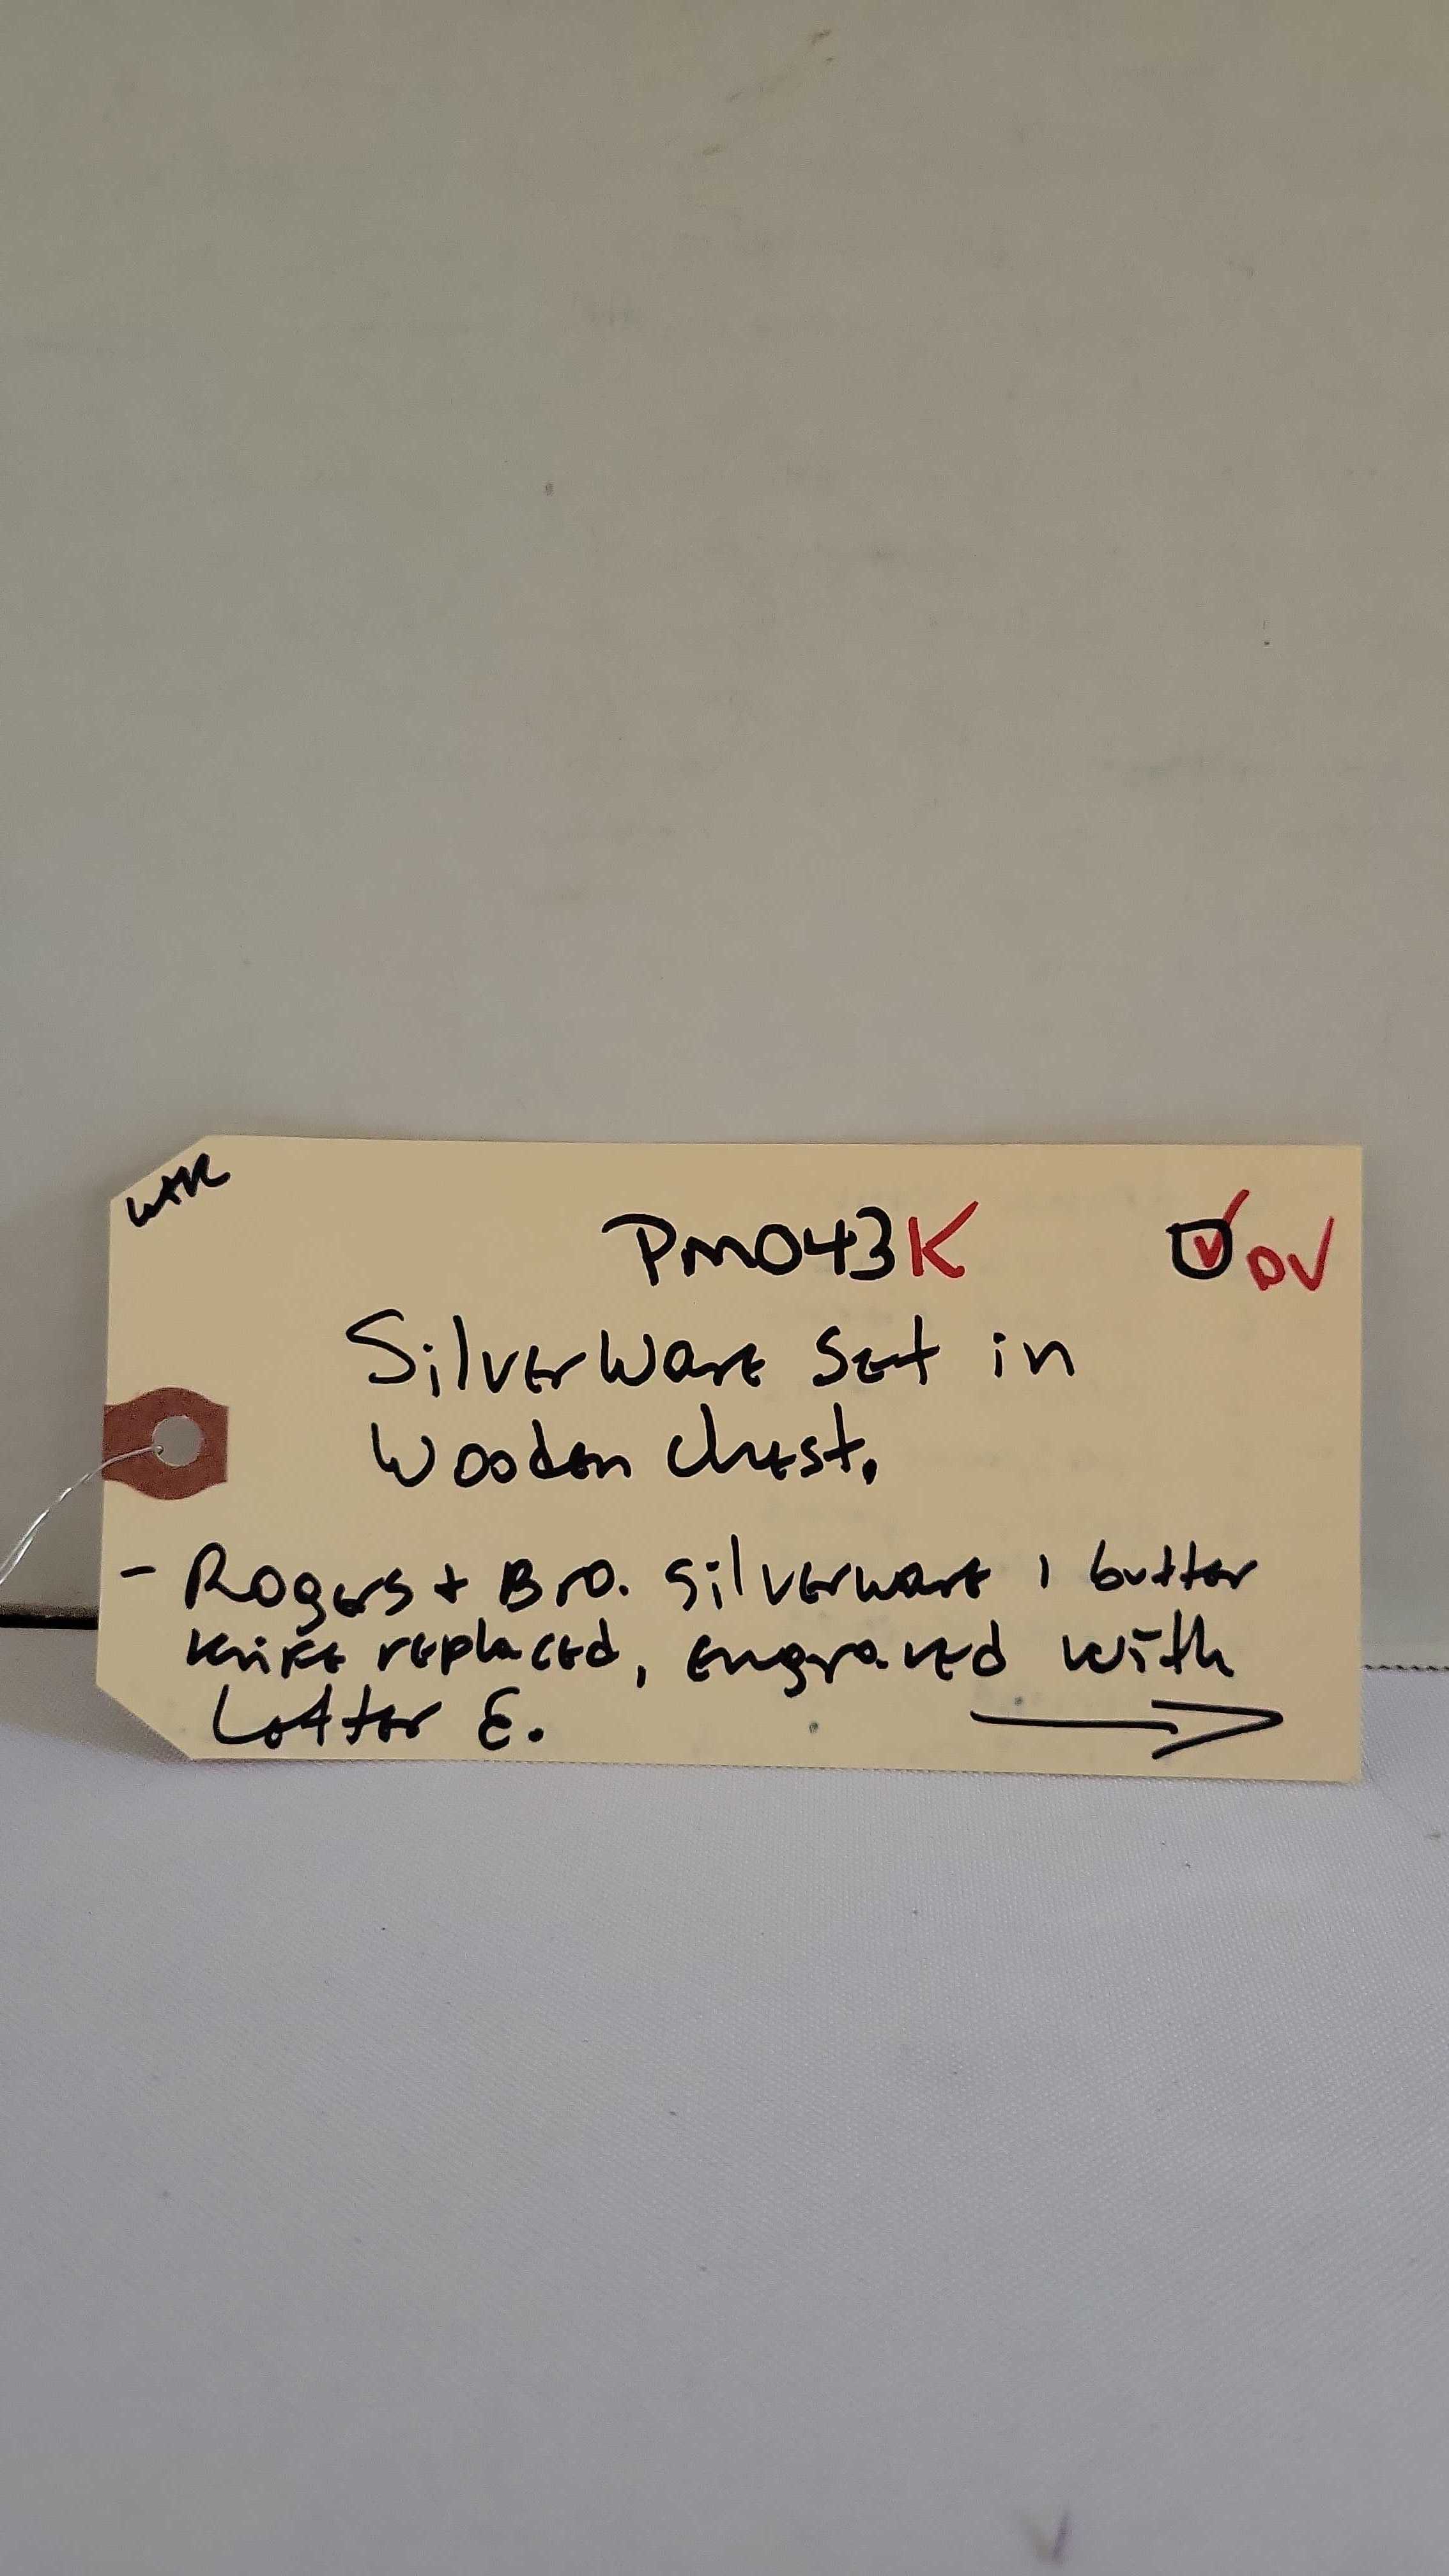 PM043K DV
SilverWare set in
Wooden chest.
- Rogers + Bro. silverware 1 butter
knife replaced, engraved with
Letter E.